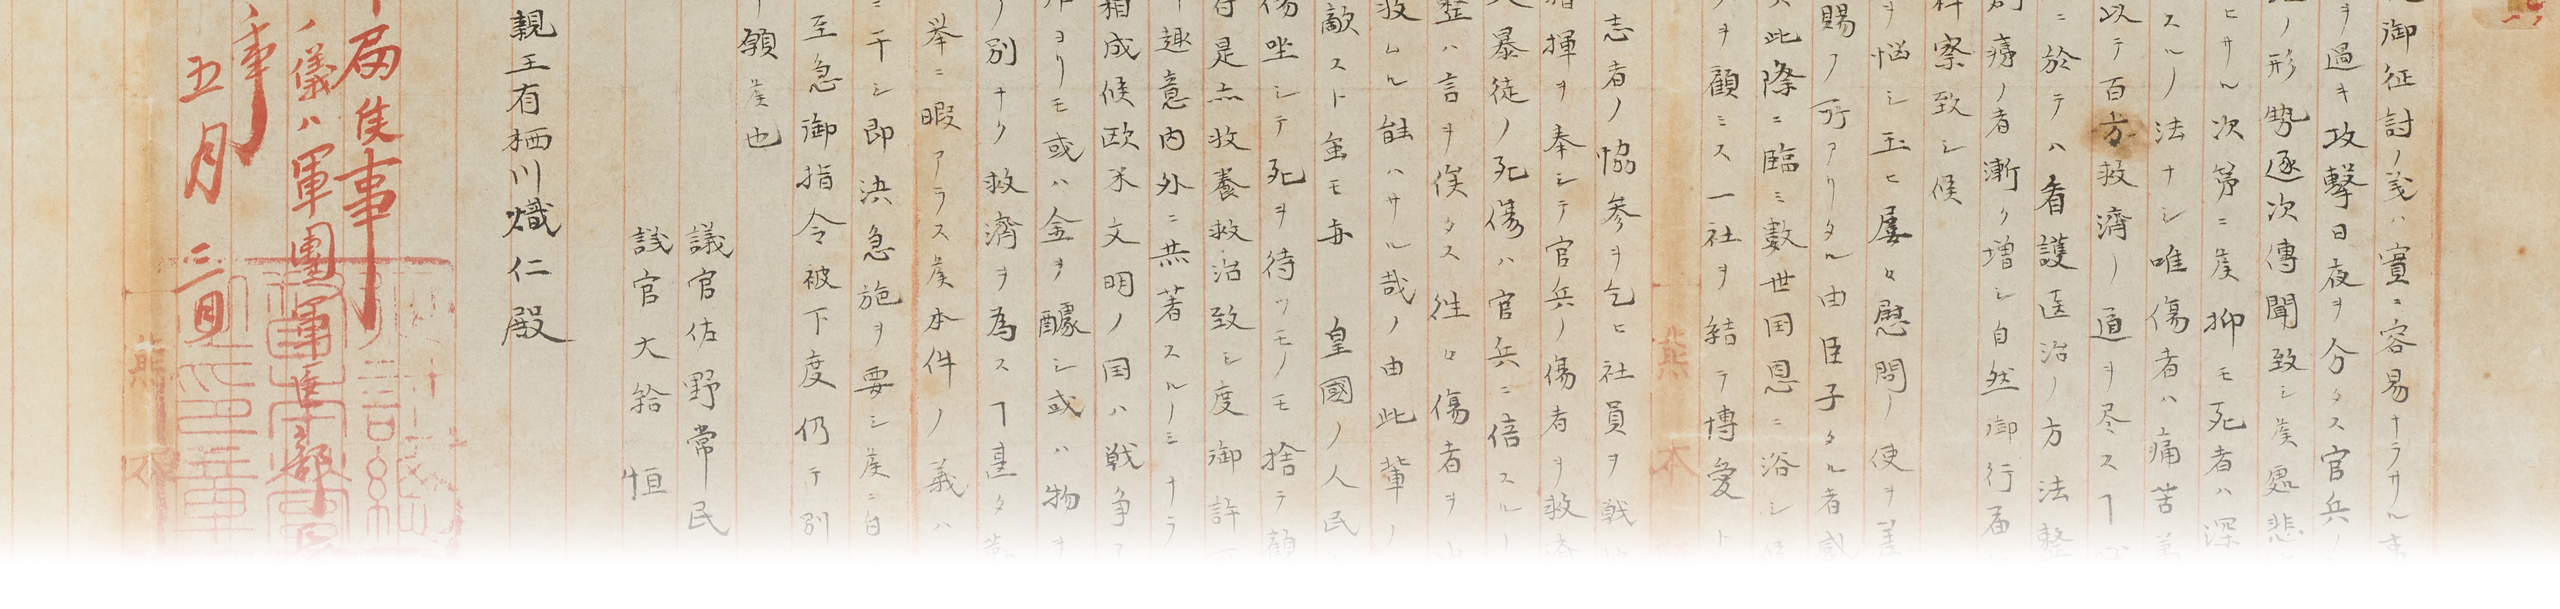 御征討ノ義ハ實ニ容易ナラサル事
ヲ過キ攻擊日夜ヲ分タス官兵ノ
ノ形勢逐次傳聞致シ候處悲
ヒサル次第ニ候抑モ死者ハ深
スルノ法ナシ唯傷者ハ痛苦萬
以テ百方救濟ノ道ヲ尽スヿ
ニ於テハ看護医治ノ方法整
創痍ノ者漸ク増シ自然御行届
料察致シ候
ヲ悩シ玉ヒ屡々慰問ノ使ヲ差
賜フ所アリタル由臣子タル者感
此際ニ臨ミ數世国恩ニ浴シ候
ヲ顧ミス一社ヲ結テ博愛ト
志者ノ協参ヲ乞ヒ社員ヲ戦
指揮ヲ奉シテ官兵ノ傷者ヲ救済
暴徒ノ死傷ハ官兵ニ倍スルノ
整ハ言ヲ俟タス往々傷者ヲ山
救ムル能ハサル哉ノ由此輩ノ
敵スト雖モ亦 皇國ノ人民
傷坐シテ死ヲ待ツモノモ捨テ顧
是亦救養救治致シ度御許可
趣意内外ニ著スルノミナラ
相成候欧米文明ノ国ハ戦争ア
ヨリモ或ハ金ヲ醵シ或ハ物ヲ
ノ別ナク救済ヲ為スヿ甚タ勤
挙ニ暇アラス候本件ノ義ハ
ニ干シ即決急施ヲ要シ候ニ付
至急御指令被下度仍テ別
願候也
議官佐野常民
議官大給 恒
親王有栖川熾仁殿
届候事
ノ儀ハ軍團軍医部長
年
五月三日
熊本